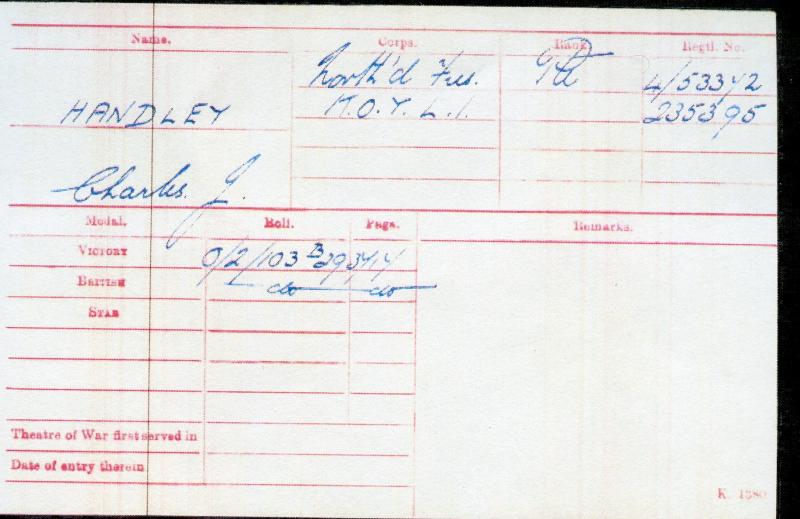 Name. Corps. Rank. Regtl. No.
North'd Fus. Pte 4/53342
HANDLEY K.O.Y.L.I. 235395
Charles. J.
Medal. Roll. Page.
Remarks.
VICTORY O/2/103 B29 3414
BRITISH do do
STAR
Theatre of War first served in
Date of entry therein
K. 1380